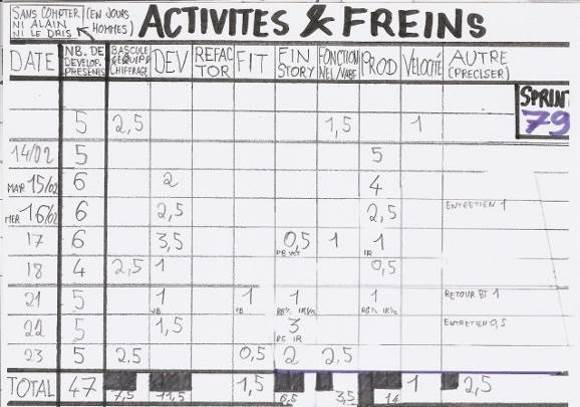 SANS COMPTER (EN JOURS
NI ALAIN HOMMES)
NI LE DAIS
ACTIVITES & FREINS
DATE NB. DE DEVELOP. PRESENTS BASCULE CHIFFRAGE DEV REFACTOR FIT FIN STORY FONCTIONNEL/ PROD VELOCITE AUTRE (PRECISER)
SPRINT
79
5 2,5 1,5 1
14/02 5 5
MAR 15/02 6 2 4
MER 16/02 6 2,5 2,5 ENTRETIEN 1
17 6 3,5 0,5 1 1
IR
18 4 2,5 1 0,5
21 5 1 1 1 1 RETOUR BT 1
22 5 1,5 3 ENTRETIEN 0,5
23 5 2,5 0,5 2 2,5
TOTAL 47 7,5 11,5 1,5 6,5 3,5 14 1 2,5